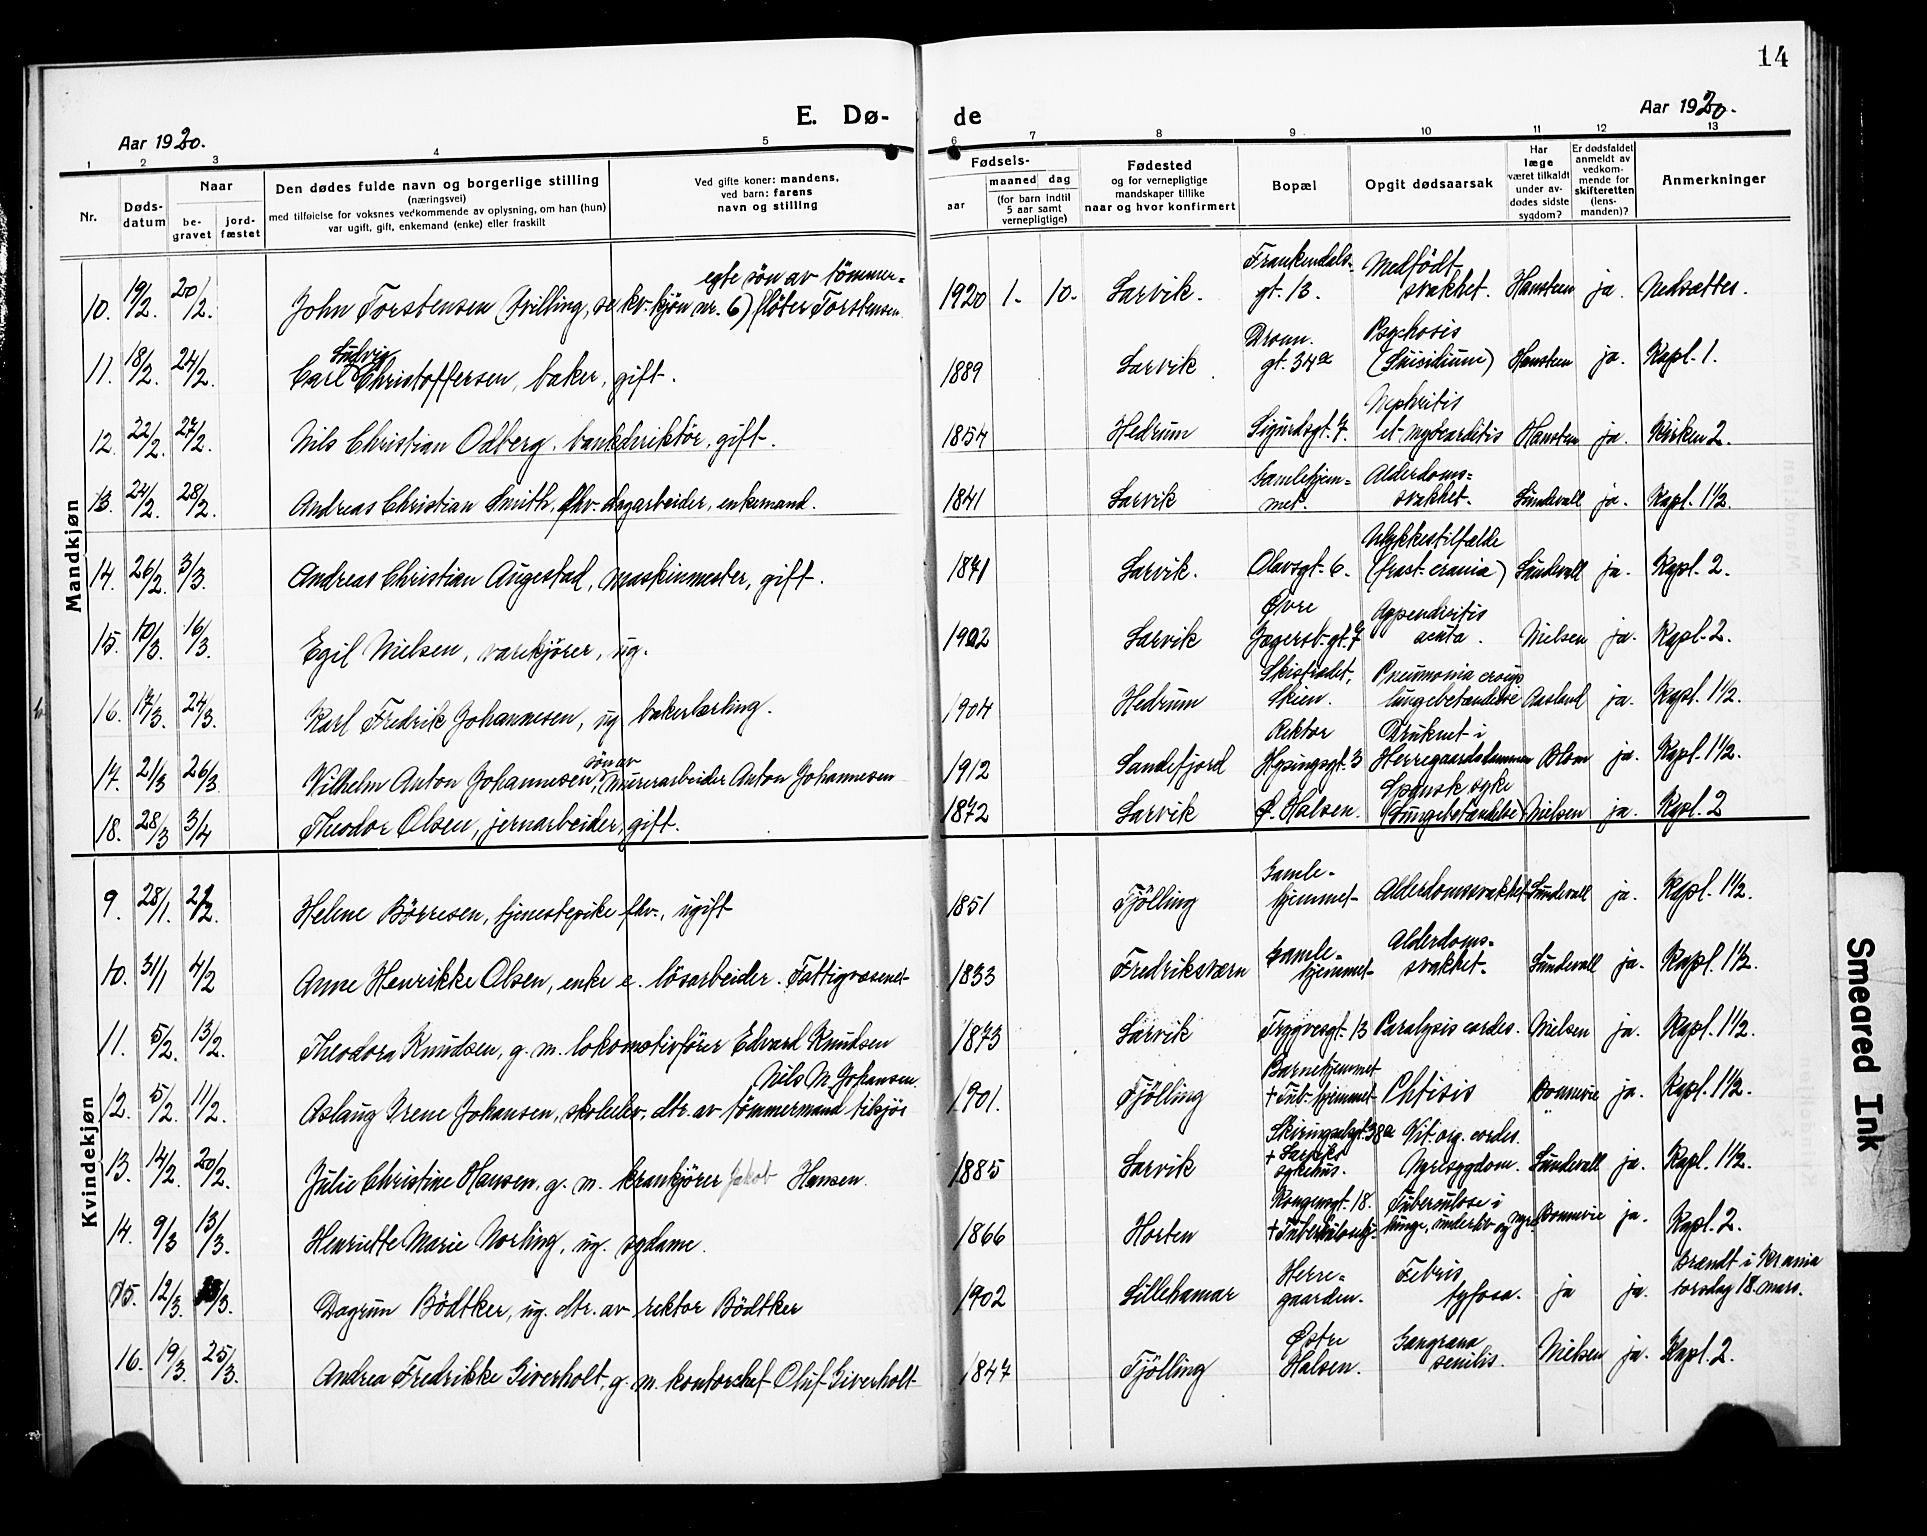 14
E. Dø-
de
Aar 1920.
Aar 1920.
1 2 3 4 5 6 7 8 9 10 11 12 13
Nr.
Døds-
datum
Naar
be-
gravet
jord-
fæstet
Den dødes fulde navn og borgerlige stilling
(næringsvei)
med tilføielse for voksnes vedkommende av oplysning, om han (hun)
var ugift, gift, enkemand (enke) eller fraskilt
Ved gifte koner: mandens,
ved barn: farens
navn og stilling
Fødsels-
aar
maaned dag
(for barn indtil
5 aar samt
vernepligtige)
Fødested
og for vernepligtige
mandskaper tillike
naar og hvor konfirmert
Bopæl
Opgit dødsaarsak
Har
læge
været tilkaldt
under av-
dødes sidste
sygdom?
Er dødsfaldet
anmeldt av
vedkom-
mende for
skifteretten
(lens-
manden)?
Anmerkninger
Mandkjøn
10. 19/2. 20/2. John Torstensen (tvilling, se kv. kjøn nr. 6) egte søn av tømmer-
fløter Torstensen 1920 1. 10. Larvik. Frankendals-
gt. 13. Medfødt
svakhet. Hansteen ja. Nedsættes.
11. 18/2. 24/2. Carl Ludvig Christoffersen, baker, gift. 1889 Larvik Dronn.
gt. 34a Psychosis
(Suisidium) Hansteen ja. Kapl. 1.
12. 22/2. 27/2. Nils Christian Odberg, bankdirektør, gift. 1854 Hedrum Sigurdsgt. 7. Nephritis
et myocarditis Hansteen ja. Kirken 2.
13. 24/2. 28/2. Andreas Christian Smith, fhv. dagarbeider, enkemand. 1841 Larvik Gamlehjem-
met. Alderdoms-
svakhet. Sundevall ja. Kapl. 1½.
14. 26/2. 3/3. Andreas Christian Augestad, maskinmester, gift. 1871 Larvik. Olavsgt. 6. Ulykkestilfælde
(fract. crania) Sundevall ja. Kapl. 2.
15. 10/3. 16/3. Egil Nielsen, varekjører, ug. 1902 Larvik Øvre
Jegersb. gt. 7 Appendicitis
acuta. Nielsen ja. Kapl. 2.
16. 17/3. 24/3. Karl Fredrik Johannesen, ug bakerlærling. 1904 Hedrum Skistredet,
Skien. Pneumonia croup
lungebetændelse Aasland ja. Kapl. 1½.
17. 21/3 26/3 Vilhelm Anton Johannesen, søn av murerarbeider Anton Johannesen 1912 Sandefjord Rektor
Hysingsgt. 3 Druknet i
Herregaardsdammen Blom ja. Kapl. 1½.
18. 28/3 3/4 Theodor Olsen, jernarbeider, gift. 1872 Larvik Ø. Halsen. Spansk syke
(Lungebetændelse) Nielsen ja. Kapl. 2
Kvindekjøn
9. 28/1. 2/2. Helene Børresen, tjenestepike fhv., ugift 1851 Tjølling Gamle-
hjemmet Alderdomssvakhet Sundevall ja. Kapl. 1½.
10. 31/1 4/2 Anne Henrikke Olsen, enke e. løsarbeider. Fattigvæsenet 1833 Fredriksværn Gamle-
hjemmet Alderdoms-
svakhet. Sundevall ja. Kapl. 1½.
11. 5/2. 13/2. Theodora Knudsen, g. m. lokomotivfører Edvard Knudsen 1873 Larvik Tryggvesgt. 13 Paralysis cordis. Nielsen ja. Kapl. 1½.
12. 5/2. 11/2. Aslaug Irene Johansen, skoleelev, dtr. av tømmermand tilsjøs Nils M. Johansen 1901. Tjølling Barnehjemmet
+ Tub. hjemmet Phtisis Bonnevie ja. Kapl. 1½.
13. 14/2. 20/2. Julie Christine Hansen, g. m. krankjører Jakob Hansen. 1885 Larvik Skiringsalsgt. 38a
+ Larviks
sykehus. Vit. org. cordis.
Nyresygdom. Sundevall ja. Kapl. 1½.
14. 9/3 13/3. Henriette Marie Norling, ug. sydame. 1866 Horten Kongensgt. 18.
+ Tuberkulosehj. Tuberculose i
lunge, underliv og nyre Bonnevie ja. Kapl. 2.
15. 12/3. /3. Dagrun Bødtker, ug. dtr. av rektor Bødtker 1902 Lillehamar Herre-
gaarden. Febris
tyfosa. ja ja. Brændt i Krania
torsdag 18. mars.
16. 19/3. 25/3. Andrea Fredrikke Siverholt, g. m. kontorchef Oluf Siverholt 1847 Tjølling Østre
Halsen. Gangræna
senilis. Nielsen ja. Kapl. 2.
Smeared Ink